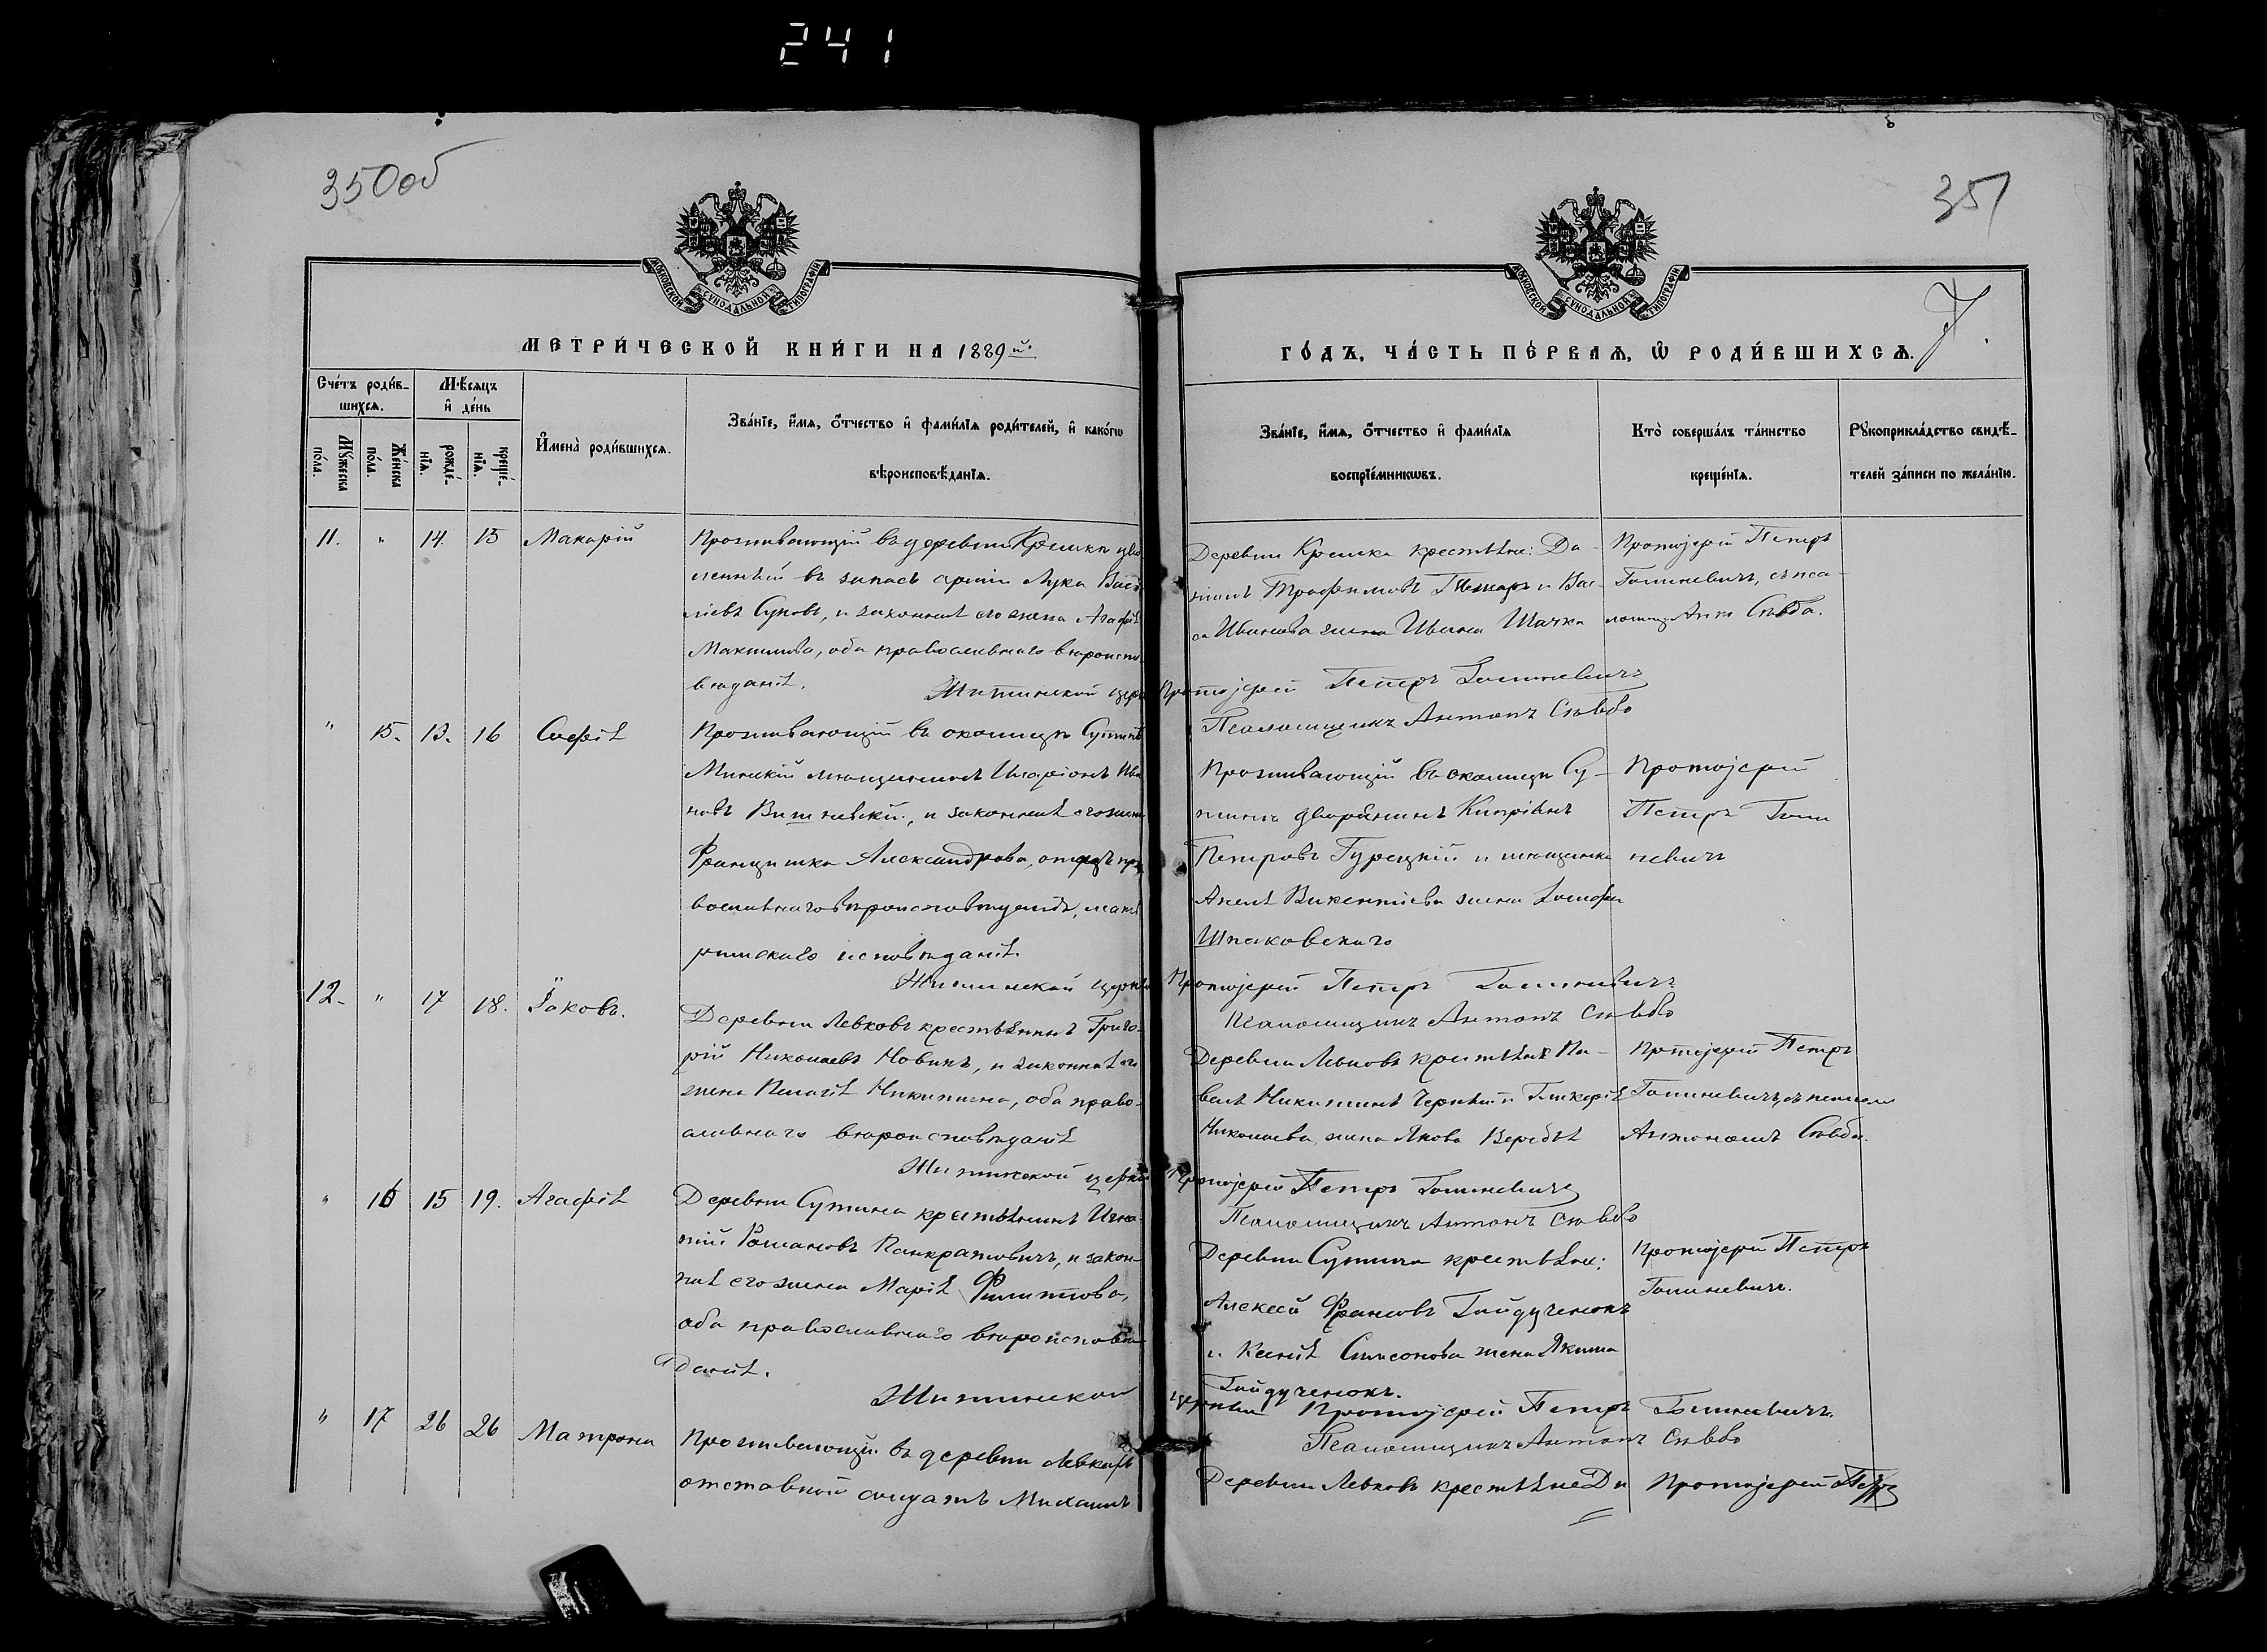 241
350об
351
7.
МОСКОВСКОЙ СѴНОДАЛЬНОЙ ТИПОГРАФІИ
МОСКОВСКОЙ СѴНОДАЛЬНОЙ ТИПОГРАФІИ
МЕТРИ́ЧЕСКОЙ КНИ́ГИ НА 1889й.
ГО́ДЪ, ЧА́СТЬ ПЕ́РВАѦ, Ѽ РОДИ́ВШИХСѦ.
Сче́тъ роди́в-
шихсѧ.
Мѣ́сѧцъ
и҆ де́нь
Мꙋ́жеска
по́ла.
Же́нска
по́ла.
рожде́-
нїѧ.
креще́-
нїѧ.
И҆мена̀ роди́вшихсѧ.
Зва́нїе, и҆́мѧ, ѻ҆́тчество и҆ фами́лїѧ роди́телей, и҆ како́гѡ
вѣроисповѣ́данїѧ.
Зва́нїе, и҆́мѧ, ѻ҆́тчество и҆ фами́лїѧ
воспрїе́мникѡвъ.
Кто̀ соверша́лъ та́инство
креще́нїѧ.
Рꙋкоприкла́дство свидѣ́-
телей за́писи по жела́нїю.
11. " 14. 15 Макарій
Проживающій въ деревни Крошки уво
ленный въ запасъ арміи Лука Васи
ліевъ Суковъ, и законная его жена Агафія
Максимова, оба православнаго вѣроиспо-
вѣданія.
Житинской церк
Деревни Крошка крестьяне: Да-
ніилъ Трофимовъ и Вас-
са Иванова жена Ивана Шачка
Протоіерей Петръ
Гоминевичъ, съ пса-
Ант Снѣбо.
Протоіерей Петръ Гоминевичъ
Псаломщикъ Антонъ Снѣбо
" 15. 13. 16 Софія
Проживающій въ околицѣ Сутинѣ
Минскій мѣщанинъ Иларіонъ Ива
новъ Вишневскій, и законная его жена
Францишка Александрова, отецъ пра
вославнаго вѣроисповѣданія, мать
римскаго исповѣданія.
Житинской церкви
Проживающій въ околицѣ Су-
тинѣ дворянинъ Кипріанъ
Петровъ Турецкій и мѣщанка
Анеля Викентіева жена Іосифа
Шпаковскаго
Протоіерей
Петръ Гоми
невичъ
Протоіерей Петръ Гоминевичъ
Псаломщикъ Антонъ Снѣбо
12. " 17 18. Іаковъ.
Деревни Левковъ крестьянинъ Григо-
рій Николаевъ Новикъ, и законная его
жена Пелагія Никитина, оба право-
славнаго вѣроисповѣданія
Житинской церкви
Деревни Левковъ крестьяне Па-
велъ Никитинъ Черный и Гликерія
Николаева, жена Якова Верабья
Протоіерей Петръ
Гоминевичъ, съ псалом
Антономъ Снѣбо.
Протоіерей Петръ Гоминевичъ
Псаломщикъ Антонъ Снѣбо
" 16 15 19. Агафія
Деревни Сутина крестьянинъ Игна-
тій Романовъ Панкратовичъ, и закон-
ная его жена Марія Филиппова,
оба православнаго вѣроисповѣ-
данія.
Житинской
Деревни Сутина крестьяне:
Алексей Францовъ Гайдученокъ
и Ксенія Симсонова жена Якима
Гайдученокъ.
Протоіерей Петръ
Гоминевичъ.
церкви Протоіерей Петръ Гоминевичъ.
Псаломщикъ Антонъ Снѣбо
" 17 26 26 Матрона
Проживающій въ деревни Левкахъ
отставной солдатъ Михаилъ
Деревни Левковъ крестьяне Ди
Протоіерей Петръ